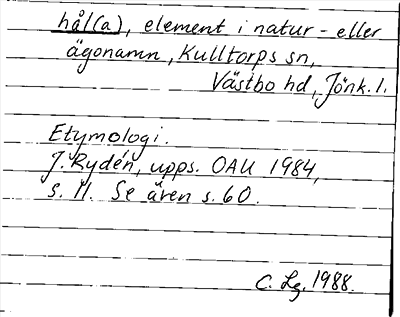 hål(a), element i natur- eller
ägonamn, Kulltorps sn,
Västbo hd, Jönk. l.
Etymologi.
J. Rydén, upps. OAU 1984,
s. 11. Se även s. 60.
C. Lg. 1988.